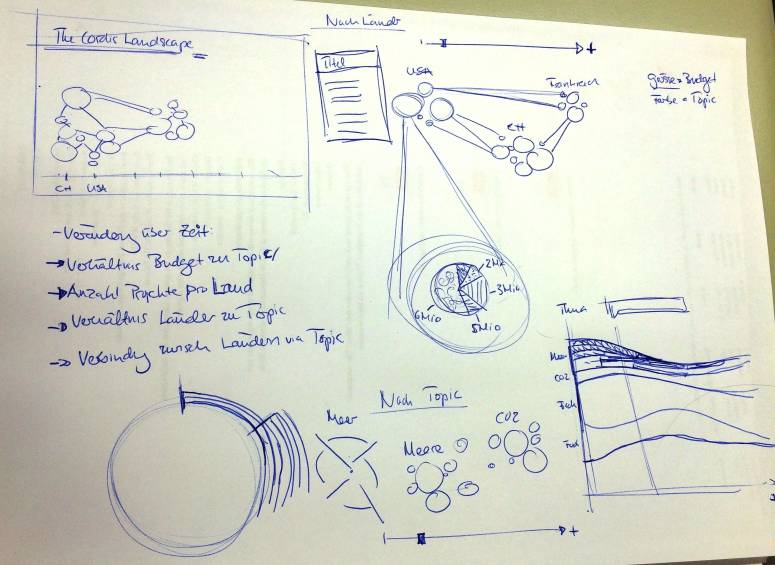 The Cordis Landscape
CH USA
Nach Länder
Titel
USA
Frankreich
CH
+
Grösse = Budget
Farbe = Topic
2Mio
3Mio
5Mio
6Mio
- Veränderg über Zeit:
→ Verhältnis Budget zu Topic
→ Anzahl Projekte pro Land
→ Verhältnis Länder zu Topic
→ Verbindg zwisch Ländern via Topic
Nach Topic
Meer
Meere
CO2
+
Thema
Meer
CO2